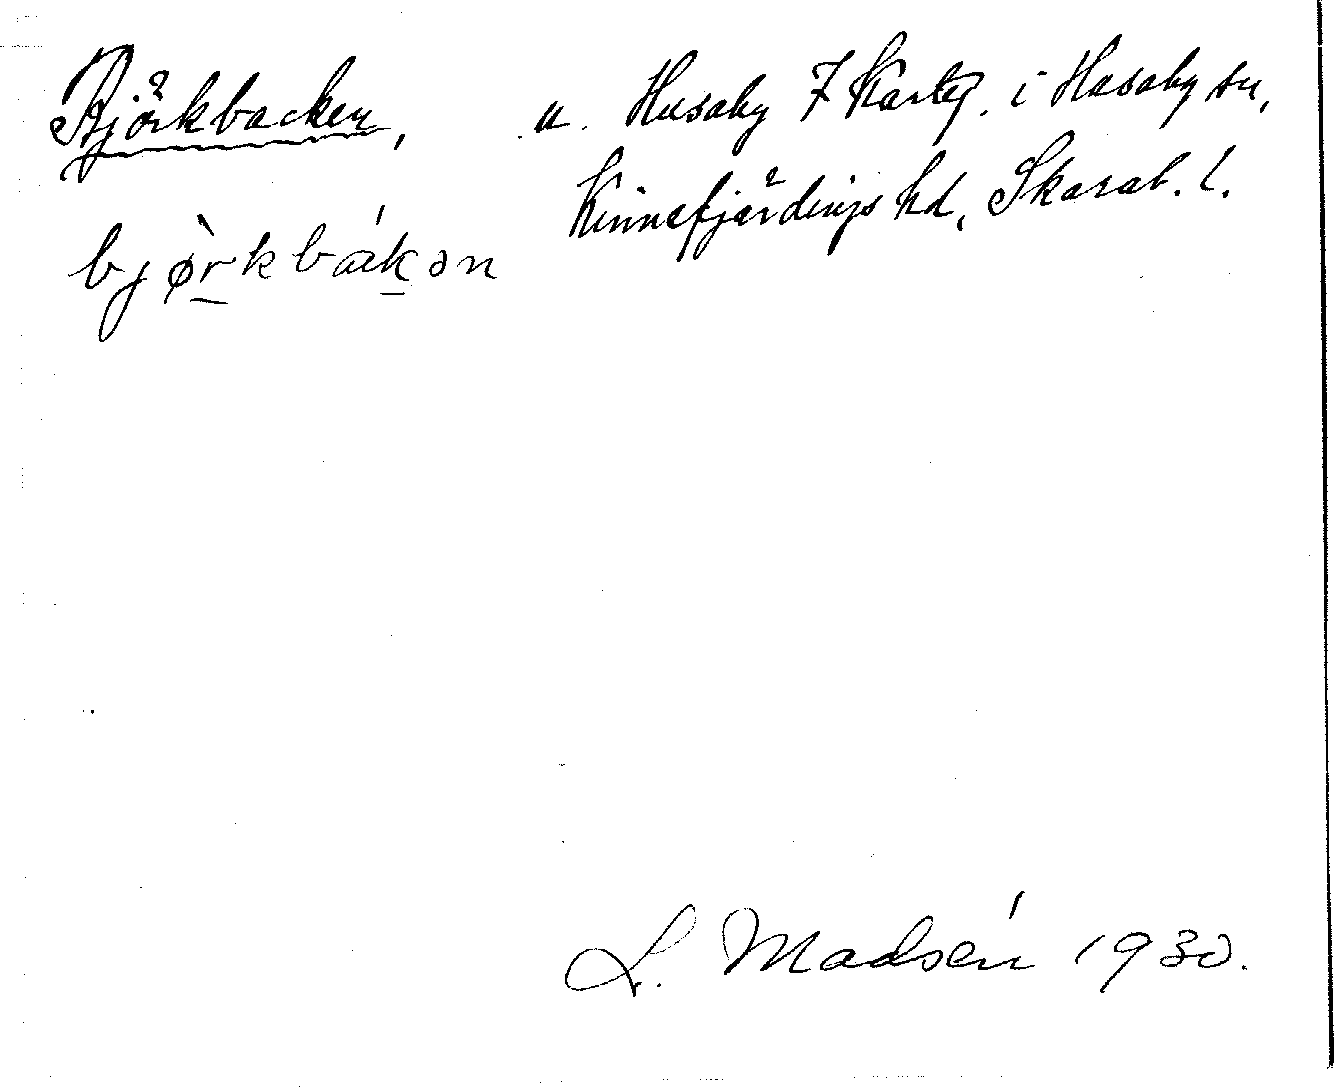 Björkbacken, u. Husaby 7 Skattej. i Husaby sn,
Kinnefjärdings hd, Skarab. l.
bjø̀rkbákən
L. Madsén 1930.